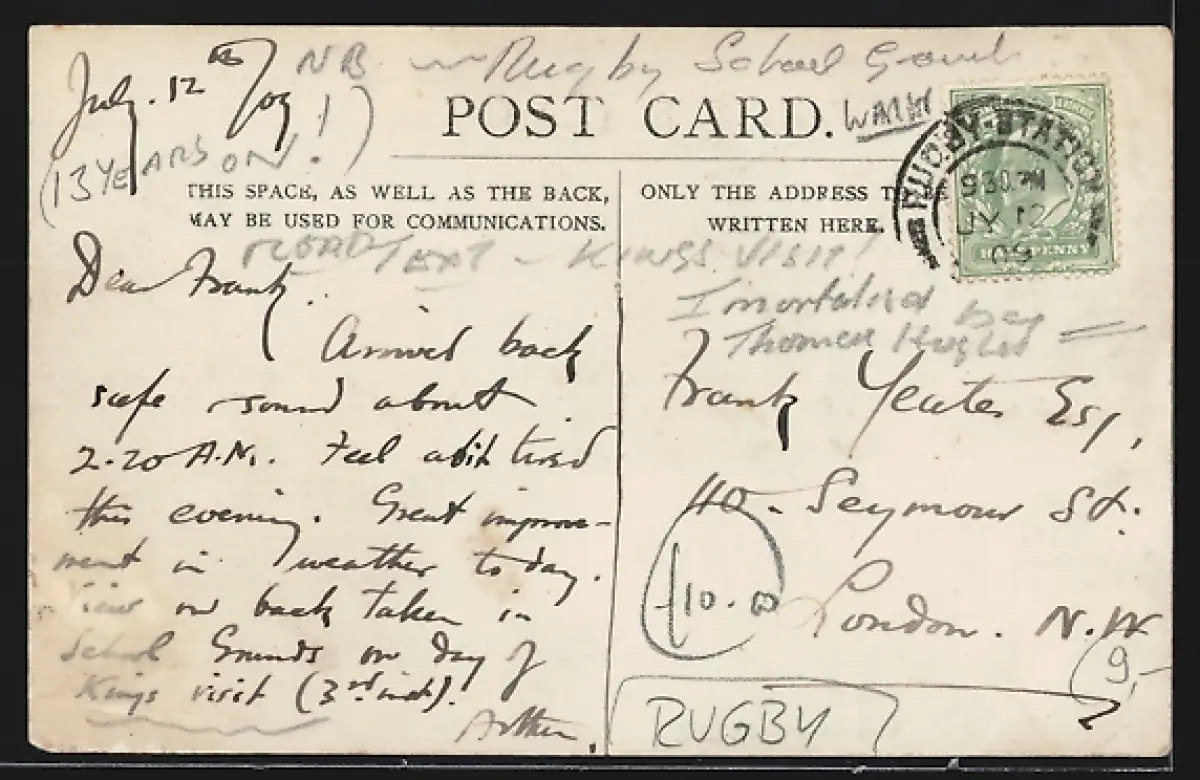 July. 12th /09
NB Rugby School
(13 YEARS ON!)
POST CARD.
RUGBY STATION
930 PM
JY 12
09
HALFPENNY
THIS SPACE, AS WELL AS THE BACK,
MAY BE USED FOR COMMUNICATIONS.
ONLY THE ADDRESS TO BE
WRITTEN HERE.
READ TEXT - KINGS VISIT!
Imortalised by
Thomas Hughes =
Dear Frank.
Arrived back
safe sound about
2.20 A.M. Feel a bit tired
this evening. Great improve-
ment in weather today.
View on back taken in
School Grounds on day of
Kings visit (3rd inst).
Arthur.
Frank Yeates Esq,
40 - Seymour St.
London. N.W
£10.00
9-
RUGBY